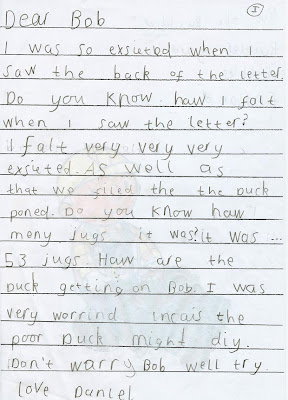 1
Dear Bob
I was so exsieted when I
saw the back of the letter.
Do you know haw I falt
when I saw the letter?
I falt very very very
exsieted. As well as
that we filed the the Duck
poned. Do you know haw
meny jugs it was? it was ...
53 jugs. Haw are the
Duck getting on Bob. I was
very worrind incais the
poor Duck might diy.
Don't warry Bob well try.
love Daniel